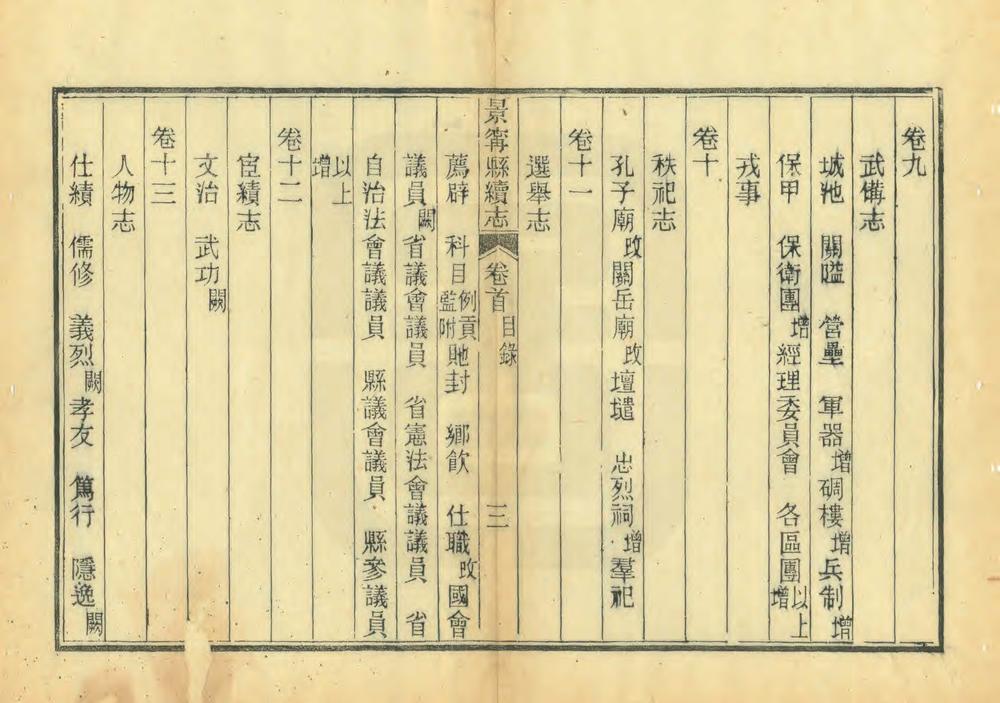 卷九
武備志
城池　關隘　營壘　軍器增碉樓增兵制增
保甲　保衛團增經理委員會　各區團以上增
戎事
卷十
秩祀志
孔子廟改關岳廟改壇壝　忠烈祠增羣祀
卷十一
選舉志
景甯縣續志　卷首　目錄　三
薦辟　科目例貢監附貤封　鄉飲　仕職改國會
議員闕省議會議員　省憲法會議議員　省
自治法會議議員　縣議會議員　縣參議員
以上增
卷十二
宦績志
文治　武功闕
卷十三
人物志
仕績　儒修　義烈闕孝友　篤行　隱逸闕